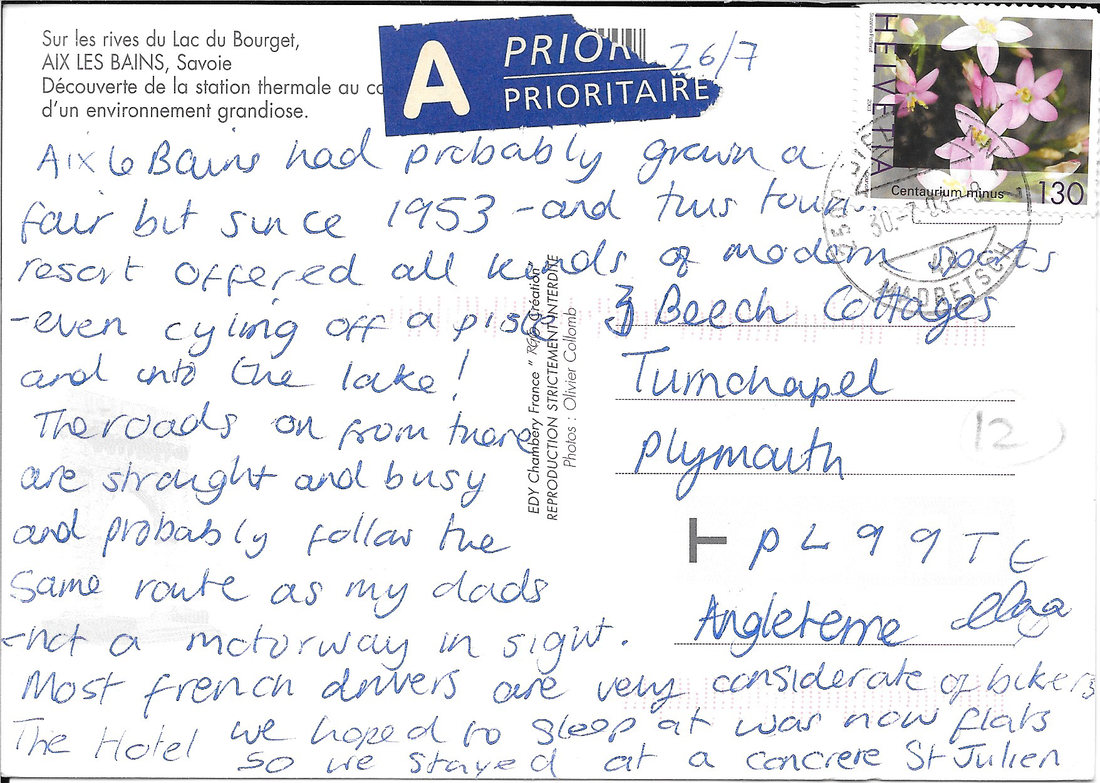 Sur les rives du Lac du Bourget,
AIX LES BAINS, Savoie
Découverte de la station thermale au
d'un environnement grandiose.
A
PRIOR
PRIORITAIRE
26/7
HELVETIA
Centaurium minus
130
30.-7.03
MADRETSCH
Aix le Bains had probably grown a
fair bit since 1953 - and this touris
resort offered all kinds of modern sports
- even cyling off a piste
and into the lake!
The roads on from there
are straight and busy
and probably follow the
same route as my dads
- not a motorway in sight.
Most french drivers are very considerate of bikers
The Hotel we hoped to sleep at was now flats
so we stayed at a concrete St Julien
EDY Chambery France " Création"
REPRODUCTION STRICTEMENT INTERDITE
Photos : Olivier Collomb
3 Beech Cottages
Turnchapel
Plymouth
PL9 9TC
Angleterre
12